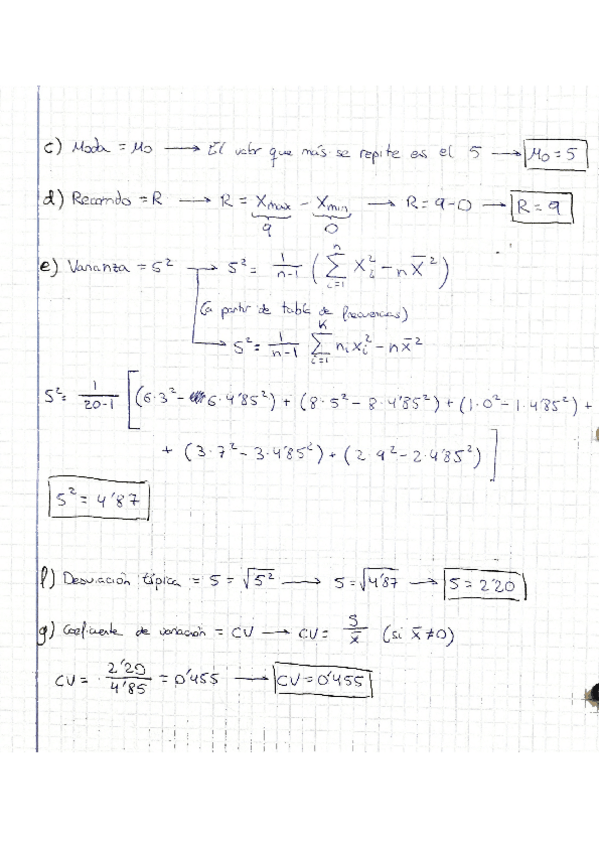 c) Moda = Mo → El valor que más se repite es el 5 → Mo = 5
d) Recorrido = R → R = Xmax - Xmin → R = 9-0 → R = 9
9 0
e) Varianza = S² → S² = 1/(n-1) (∑ᵢ₌₁ⁿ Xᵢ² - n X̄²)
(a partir de tabla de frecuencias)
→ S² = 1/(n-1) ∑ᵢ₌₁ᴷ nᵢxᵢ² - nx̄²
S² = 1/(20-1) [(6·3² - 6·4'85²) + (8·5² - 8·4'85²) + (1·0² - 1·4'85²) +
+ (3·7² - 3·4'85²) + (2·9² - 2·4'85²)]
S² = 4'87
f) Desviación típica = S = √S² → S = √4'87 → S = 2'20
g) Coeficiente de variación = CV → CV = S/x̄ (si x̄ ≠ 0)
CV = 2'20/4'85 = 0'455 → CV = 0'455